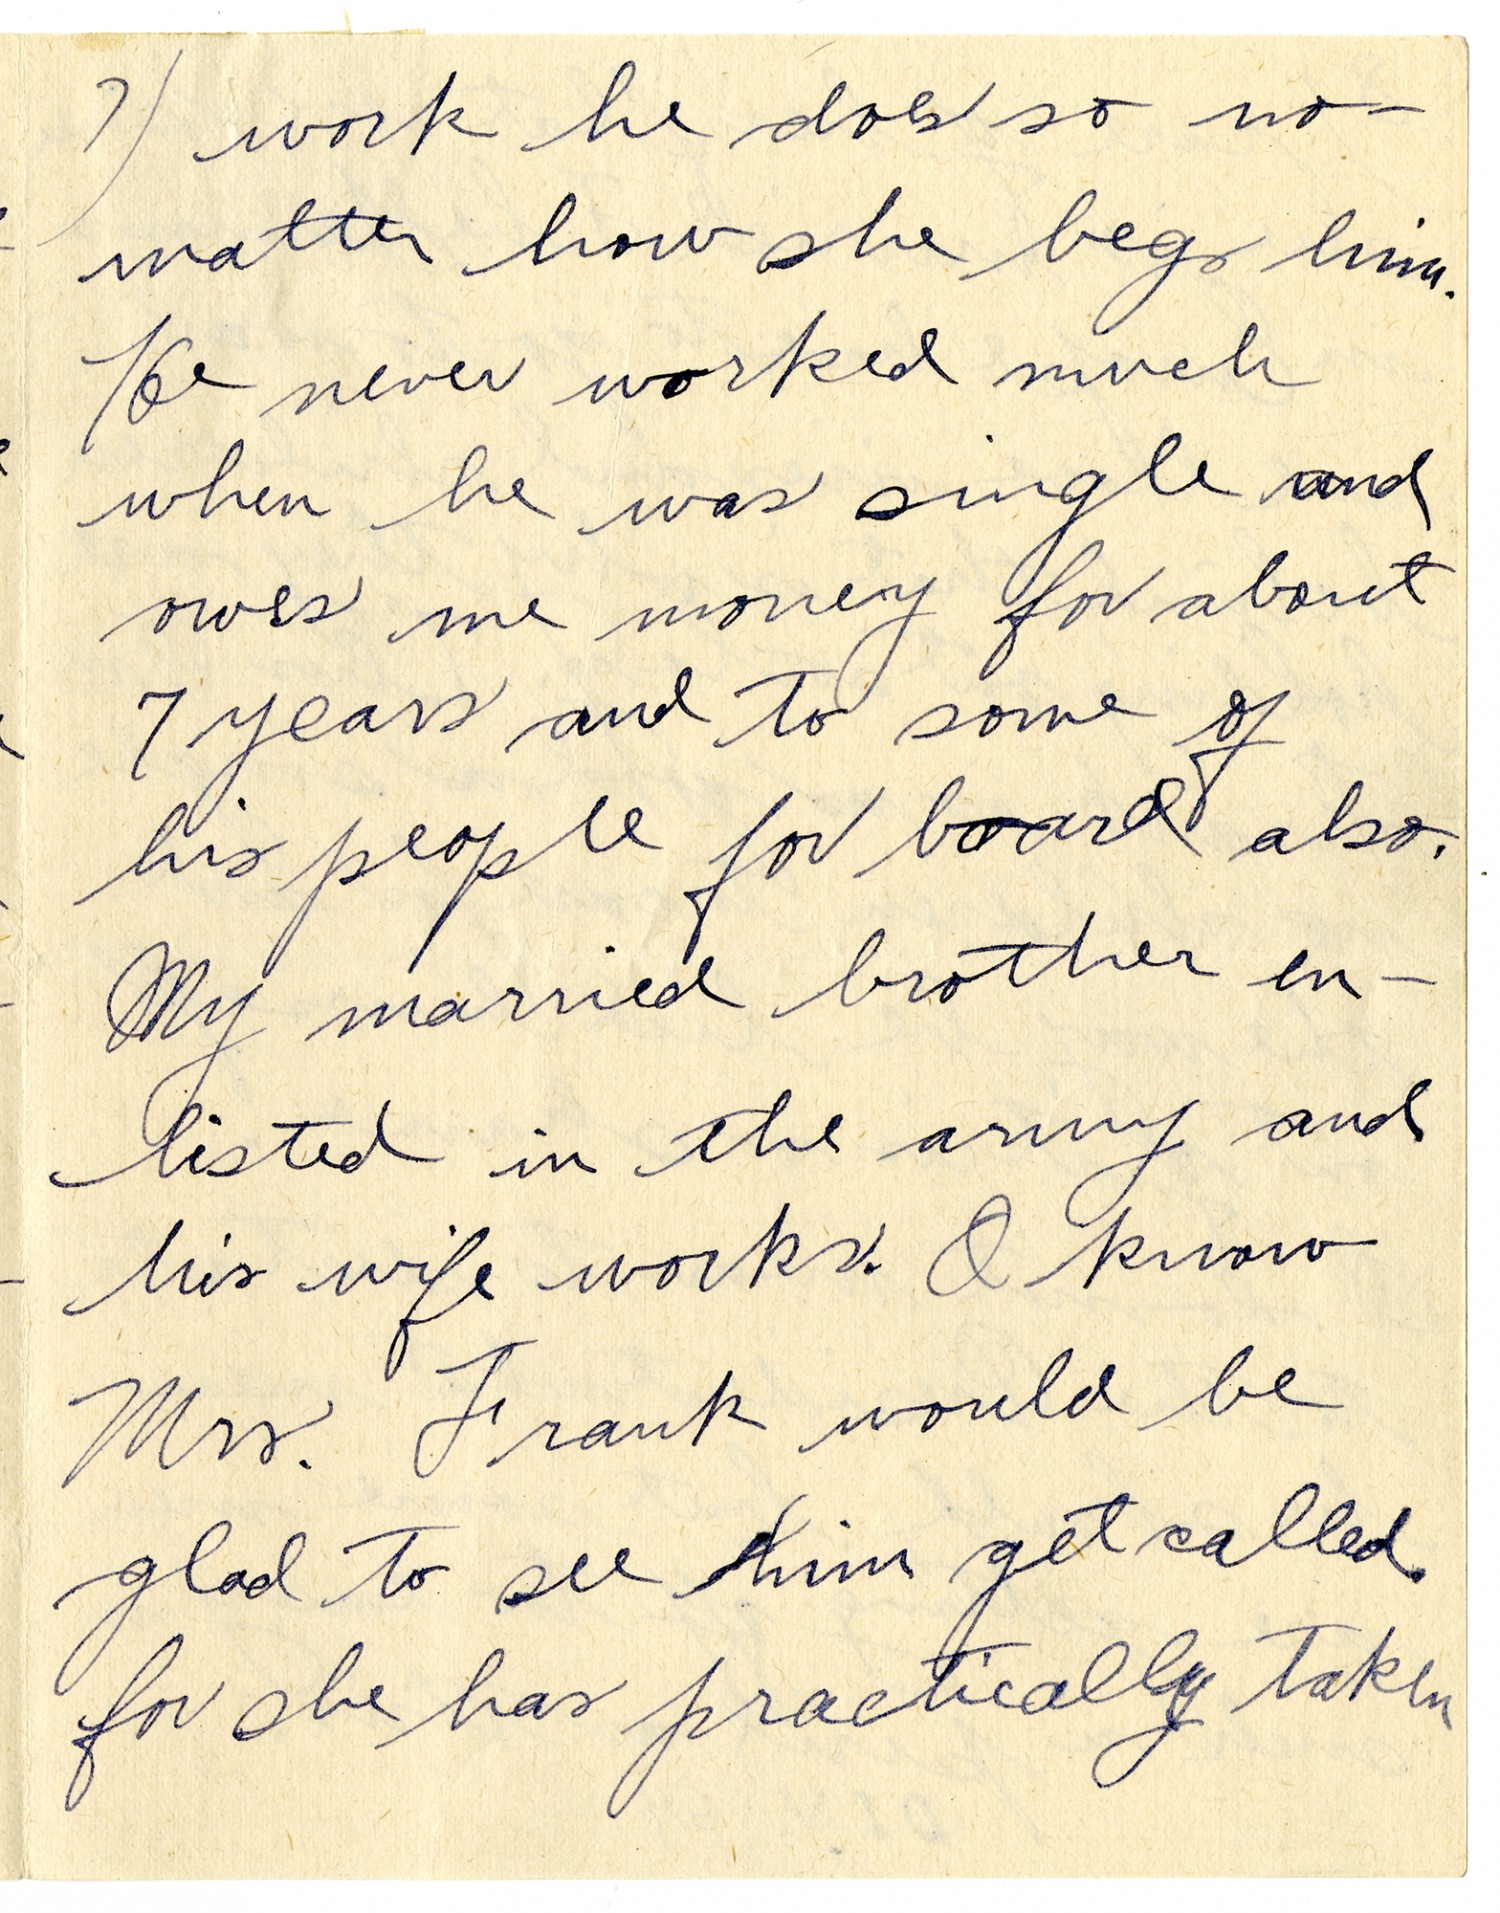 7) work he does so no-
matter how she begs him.
He never worked much
when he was single and
owes me money for about
7 years and to some of
his people for board also.
My married brother en-
listed in the army and
his wife works. I know
Mrs. Frank would be
glad to see him get called
for she has practically taken